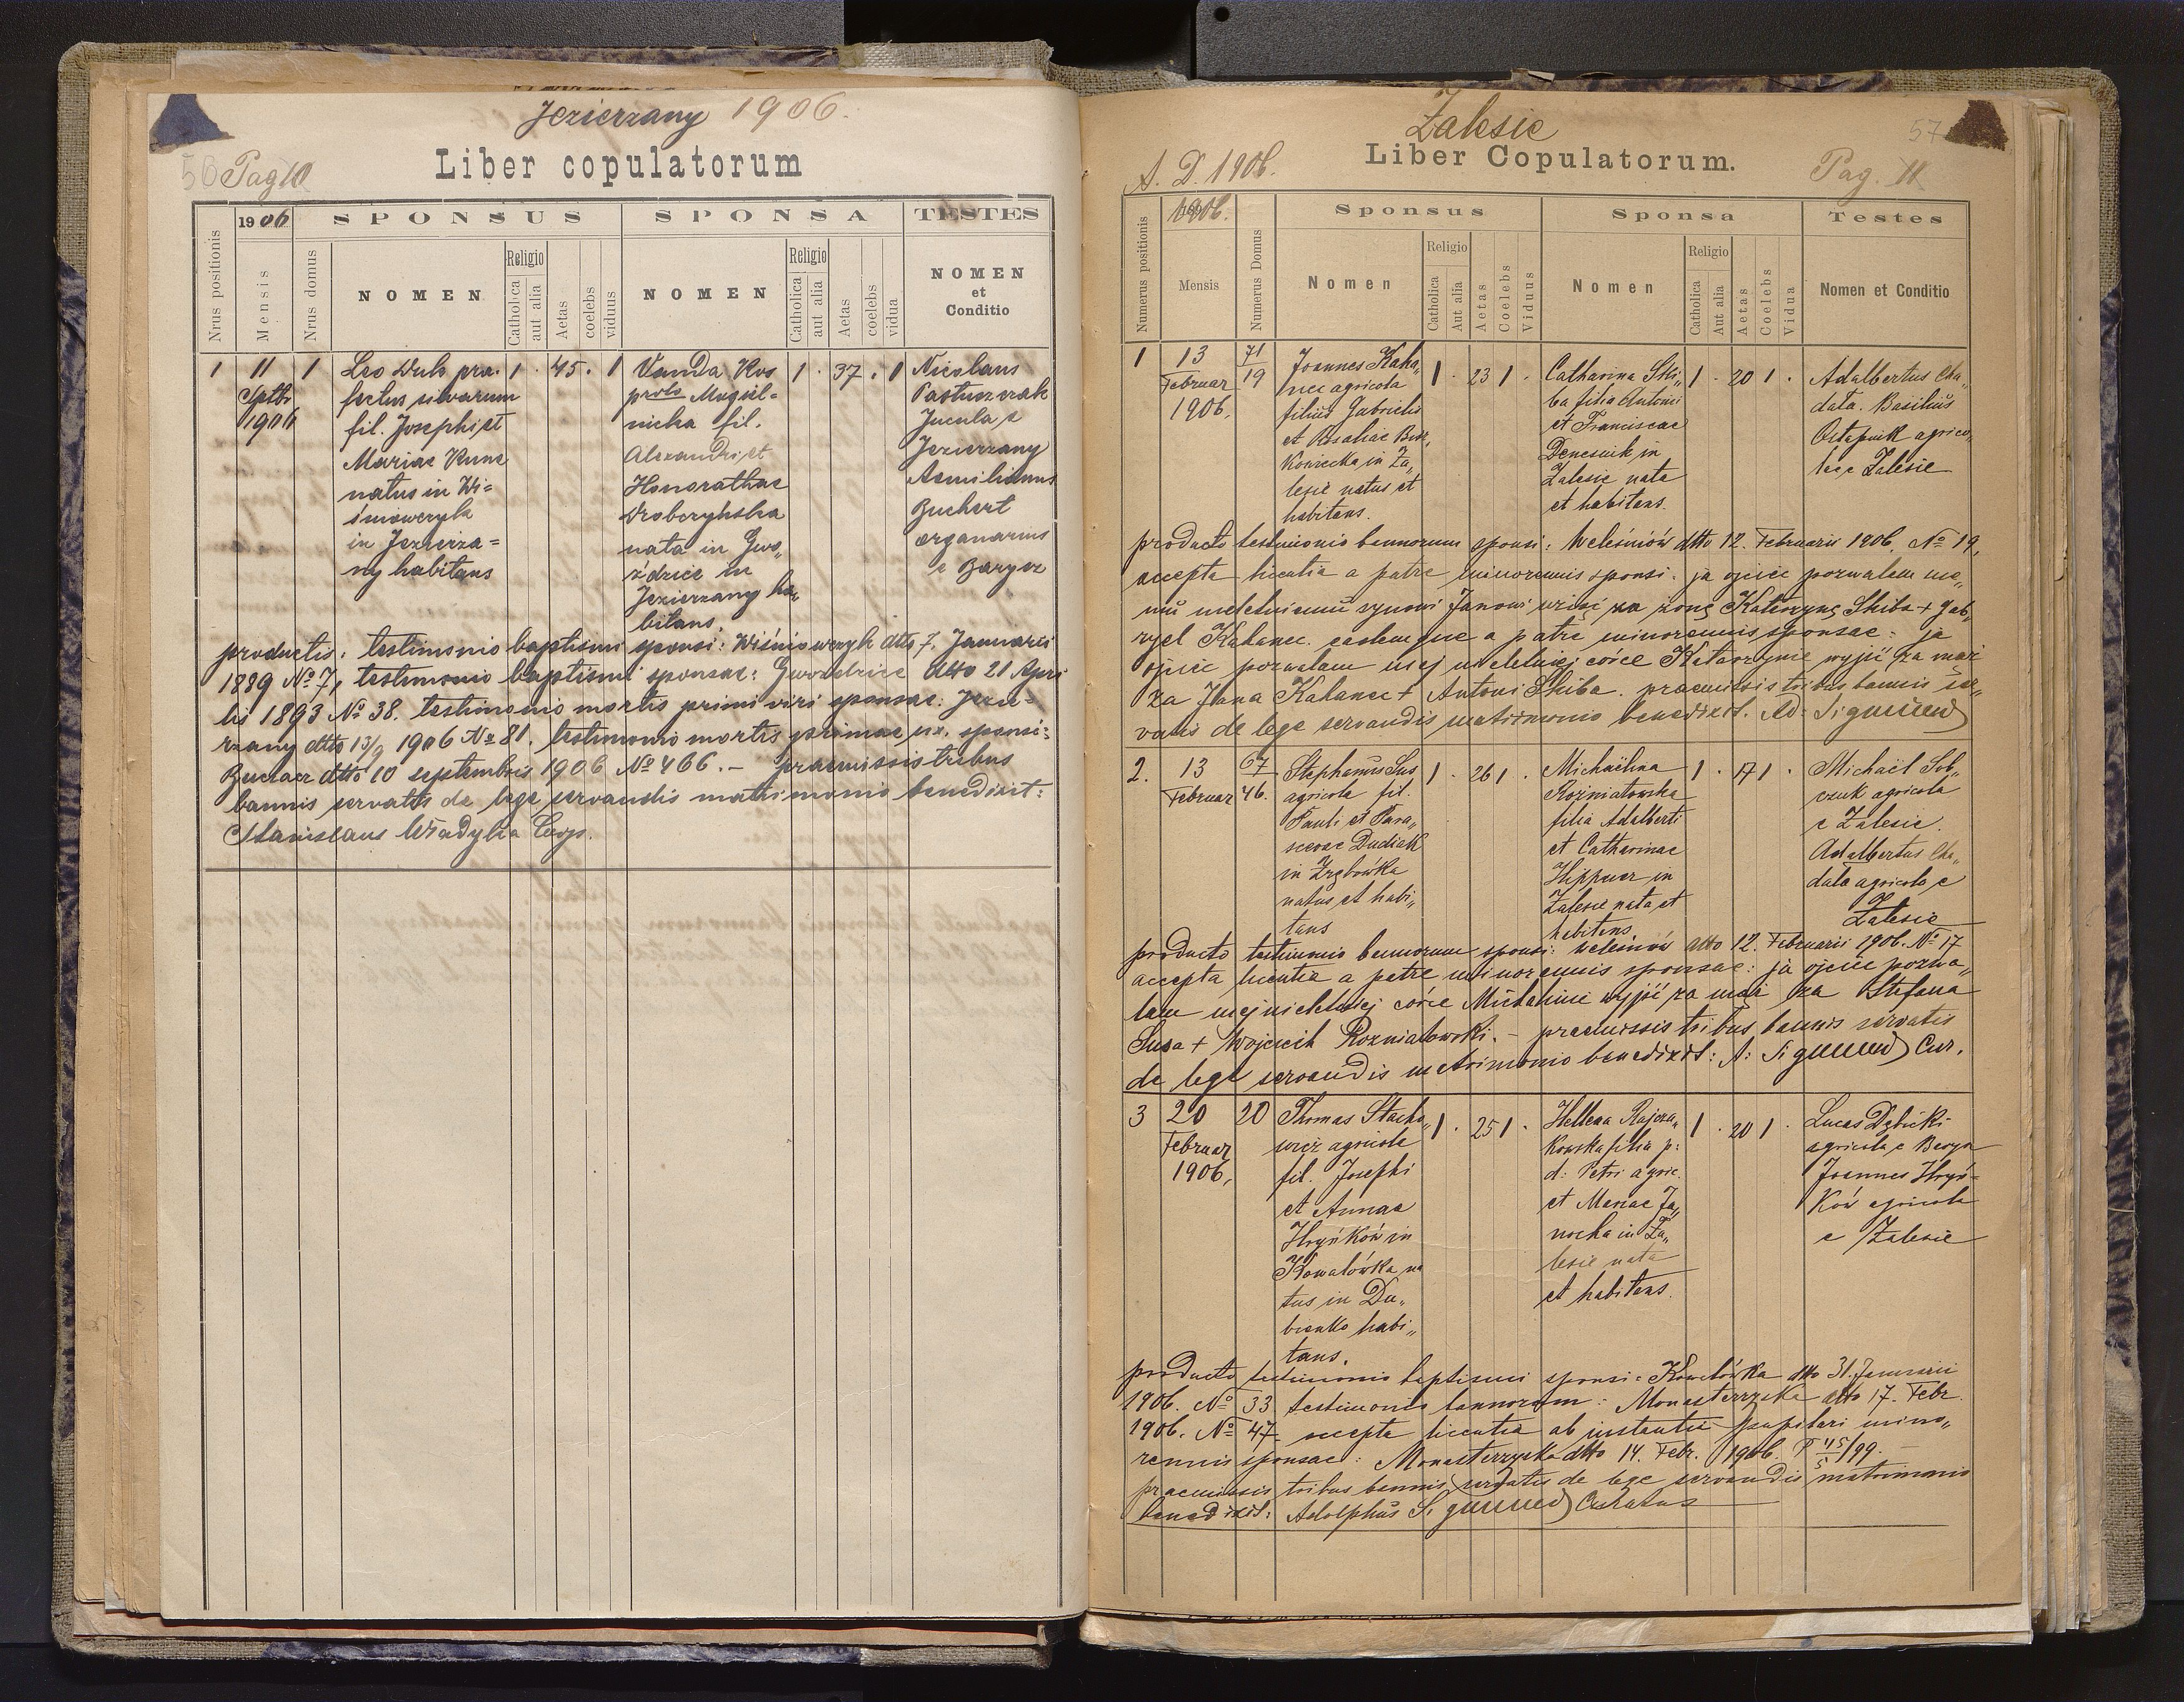 Jezierzany 1906.
56 Pag 10
Liber copulatorum
Nrus positionis
1906
Mensis
Nrus domus
SPONSUS
NOMEN
Religio
Catholica
aut alia
Aetas
coelebs
viduus
SPONSA
NOMEN
Religio
Catholica
aut alia
Aetas
coelebs
vidua
TESTES
NOMEN
et
Conditio
1
11
Septbr
1906
1
Leo Dub prae-
fectus silvarum
fil. Josephi et
Mariae Kunc
natus in Wi=
śniowczyk
in Jezierza=
ny habitans
1 . 45 . 1
Vanda Kos
proto Mogiel=
nicka fil.
Alexandri et
Honorathae
Drobczyńska
nata in Gwo„
ździec in
Jezierzany ha„
bitans.
1 . 37 . 1
Nicolaus
Pastuszczak
e
Jezierzany
Aemilianus
Buchert
organarius
e Barysz
productis: testimonio baptismi sponsi: Wiśniowczyk dtto 7. Januarii
1889 No 7, testimonio baptismi sponsae: Gwozdziec dtto 21 Apri
lis 1893 No 38. testimonio mortis primi viri sponsae: Jezie=
rzany dtto 13/2 1906 No 81. testimonio mortis primae ux. sponsi:
Buczacz dtto 10 septembris 1906 No 466. — praemissis tribus
bannis servatis de lege servandis matrimonio benedixit:
Stanislaus Władyka Coop.
Zalesie
57
A. D. 1906.
Liber Copulatorum.
Pag. 11
Numerus positionis
1906.
Mensis
Numerus Domus
Sponsus
Nomen
Religio
Catholica
Aut alia
Aetas
Coelebs
Viduus
Sponsa
Nomen
Religio
Catholica
Aut alia
Aetas
Coelebs
Vidua
Testes
Nomen et Conditio
1
13
Februar
1906.
71
19
Joannes Kaha„
nec agricola
filius Gabrielis
et Rosaliae
in Za„
lesie natus et
habitans.
1 . 23 1 .
Catharina Ski„
ba filia Antoni
et Franciscae
Denesiuk in
Zalesie nata
et habitans.
1 . 20 1 .
Adalbertus Cha„
data. Basilius
Ostapiuk agrico„
lae e Zalesie
producto testimonio bannorum sponsi: Weleśniów dtto 12. Februarii 1906. No 19,
accepta licentia a patre minorennis sponsi: ja ojciec pozwalam me„
mu nieletniemu synowi Janowi wziąć za żonę Katarzynę Skiba + Gab„
ryel Kahanec. eademque a patre minorennis sponsae: ja
ojciec pozwalam mej nieletniej córce Katarzynie wyjść za mąż
za Jana Kahanec + Antoni Skiba. praemissis tribus bannis ser„
vatis de lege servandis matrimonio benedixit. Ad: Sigmund
2.
13
Februar
67
46.
Stephanus Sus
agricola fil.
Pauli et Para„
scevae Dudiak
in Zrębówka
natus et habi„
tans
1 . 26 1 .
Michaëlina
Rozniatowska
filia Adalberti
et Catharinae
Hippner in
Zalesie nata et
habitans.
1 . 17 1 .
Michaël Sob„
czuk agricola
e Zalesie.
Adalbertus Cha„
data agricola e
Zalesie
producto testimonio bannorum sponsi: Weleśniów dtto 12. Februarii 1906. No 17
accepta licentia a patre minorennis sponsae: ja ojciec pozwa„
lam mej nieletniej córce Michalinie wyjść za mąż za Stefana
Susa + Wojciech Rozniatowski. — praemissis tribus bannis servatis
de lege servandis matrimonio benedixit: A: Sigmund Cur.
3
20
Februar
1906,
20
Thomas Stacho„
wicz agricola
fil. Josephi
et Annae
Hryńków in
Kowalówka na
tus in Du„
bienko habi„
tans.
1 . 25 1 .
Hellena Rajcza„
kowska filia p:
d: Petri agric.
et Mariae Ja„
nocha in Za„
lesie nata
et habitans.
1 . 20 1 .
Lucas Dębicki
agricola e
Joannes Hryń=
ków agricola
e Zalesie
producto testimonio baptismi sponsi: Kowalówka dtto 31. Januarii
1906. No 33 testimonio bannorum: Monasterzyska dtto 17. Febr
1906. No 47. accepta licentia ab instantia pupilari mino„
rennis sponsae: Monasterzyska dtto 14. Febr. 1906. P 45/5/99. —
praemissis tribus bannis servatis de lege servandis matrimonio
benedixit: Adolphus Sigmund Curatus